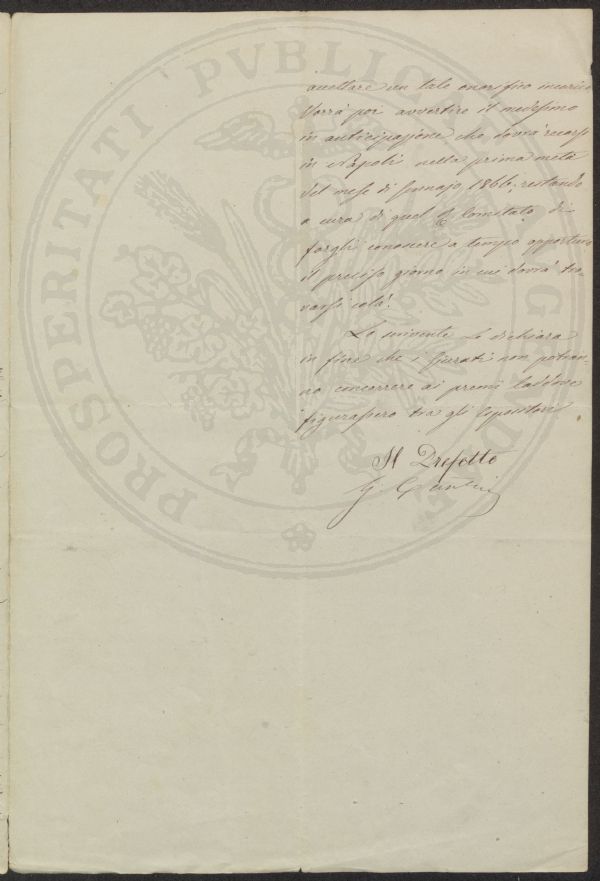 PROSPERITATI PVBLICAE AVGENDAE
cuettare un tale onorifico incarico
Vorrà poi avvertire il medesimo
in anticipazione che dovrà recarsi
in Napoli nella prima metà
del mese di Gennajo 1866; restando
a cura di quel Comitato di
fargli conoscere a tempo opportuno
il preciso giorno in cui dovrà tro-
varsi colà.
Lo scrivente Le dichiara
in fine che i Giurati non potran-
no concorrere ai premi laddove
figurassero tra gli Espositori
Il Prefetto
G.